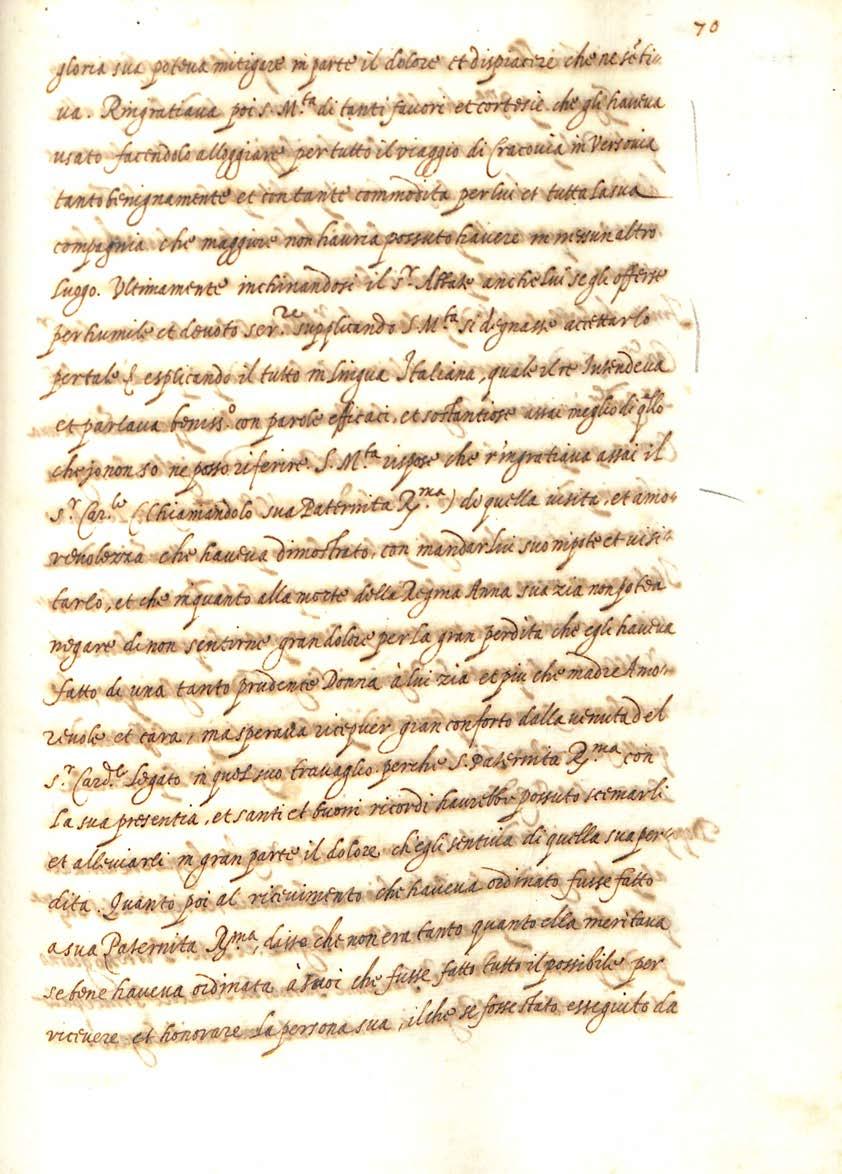 70
gloria sua poteua mitigare in parte il dolore et dispiacere che ne sẽti-
ua. Ringratiaua poi S. M.ta di tanti fauori et cortesie che gli haueua
usato facendolo alloggiare per tutto il viaggio di Cracouia in Versouia
tanto benignamente et con tante commodita per lui et tutta la sua
compagnia che maggiore non hauria possuto hauere in nessun altro
luogo. Ultimamente inchinandosi il s.r Abbate anche lui se gli offerse
per humile et deuoto ser.re supplicando S. M.ta si degnasse accettarlo
per tale esplicando il tutto in lingua Italiana, quale il re Intendeua
et parlaua beniss.o con parole efficaci, et sostantiose assai meglio di q̃llo
che jo non so ne posso riferire. S. M.ta rispose che ringratiaua assai il
s.r Car.le (Chiamandolo sua Paternita R.ma) de quella visita, et amo-
reuolezza che haueua dimostrato, con mandarlui suo nipote et visi-
tarlo, et che inquanto alla morte della Regina Anna sua zia non potea
negare di non sentirne gran dolore per la gran perdita che egli haueua
fatto di una tanto prudente Donna à lui zia et piu che madre Amo-
reuole et cara, ma speraua riceuer gran conforto dalla uenuta del
s.r Card.le Legato in quel suo trauaglio perche S. Paternita R.ma con
la sua presentia, et santi et buoni ricordi haurebbe possuto scemarli
et alleuiarli in gran parte il dolore ch'egli sentiua di quella sua per-
dita. Quanto poi al riceuimento che haueua ordinato fusse fatto
a sua Paternita R.ma, disse che non era tanto quanto ella meritaua
se bene haueua ordinata à suoi che fusse fatto tutto il possibile per
riceuere et honorare la persona sua, il che se fosse stato esseguito da